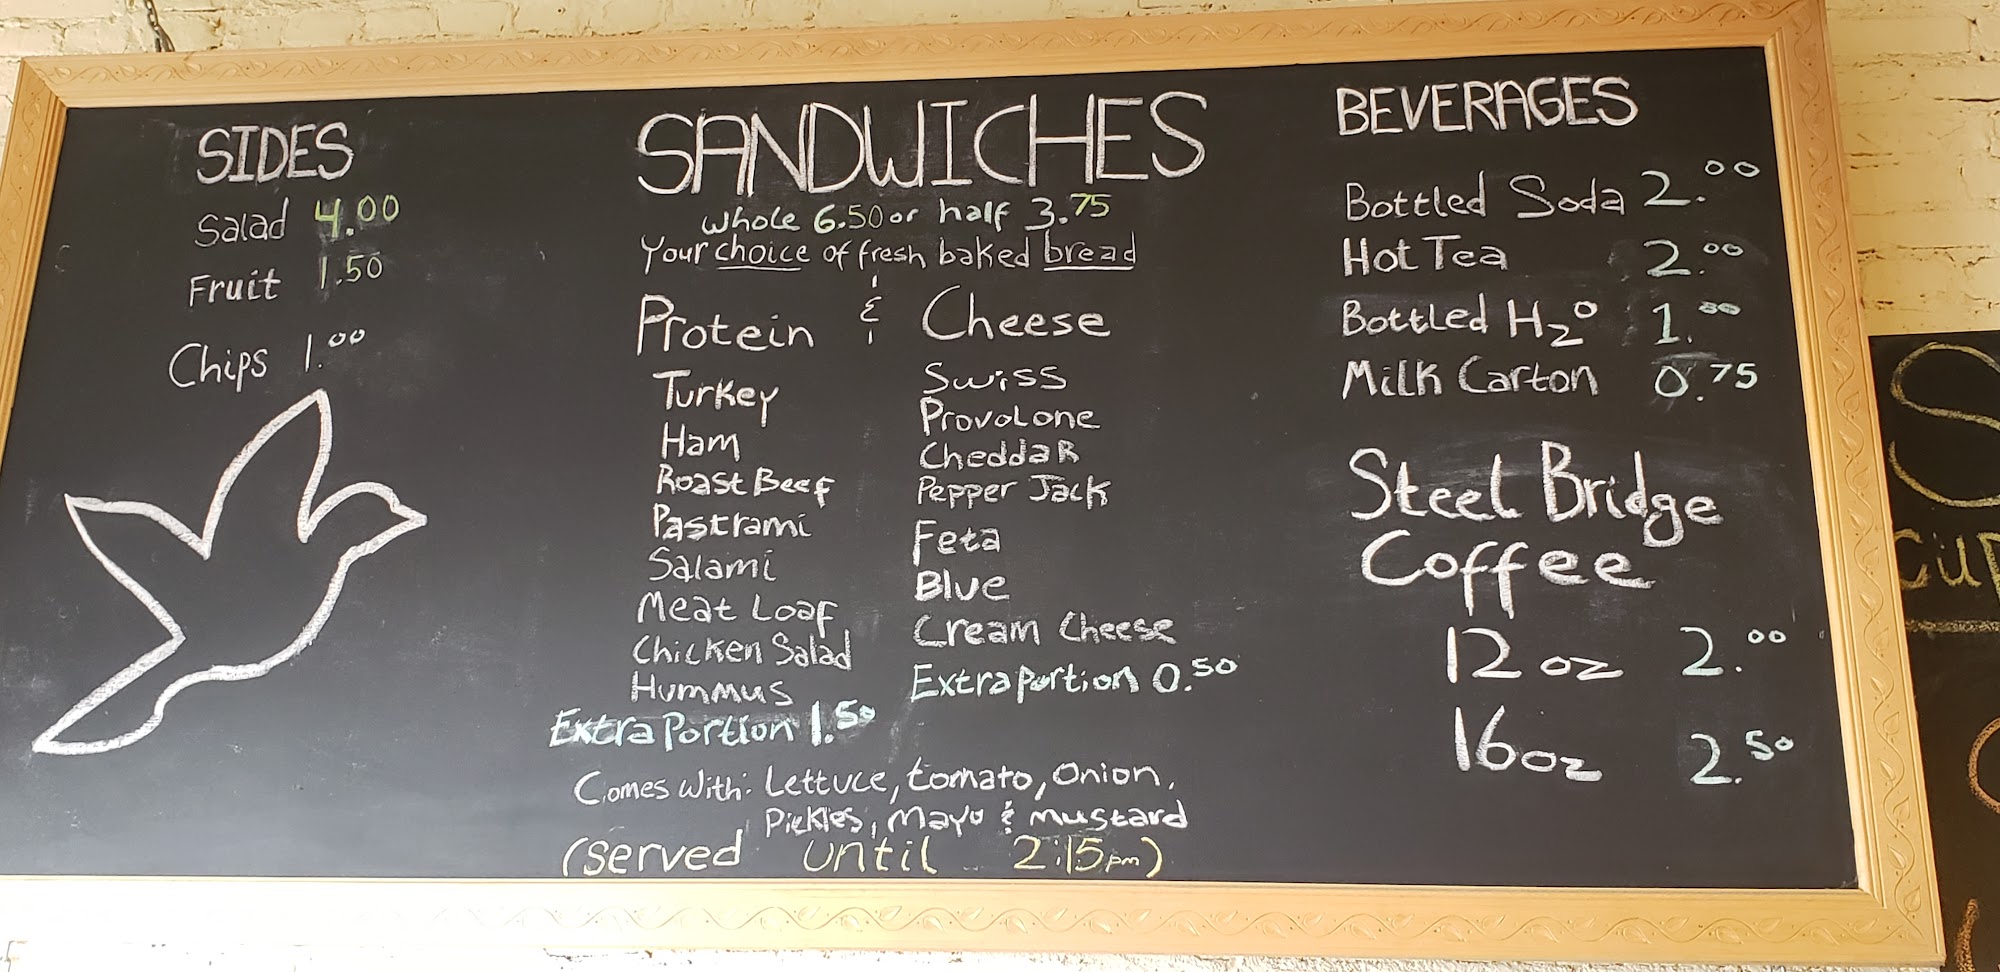 SIDES
Salad 4.00
Fruit 1.50
Chips 1.00
SANDWICHES
Whole 6.50 or half 3.75
Your choice of fresh baked bread
Protein & Cheese
Turkey
Ham
Roast Beef
Pastrami
Salami
Meat Loaf
Chicken Salad
Hummus
Extra Portion 1.50
Swiss
Provolone
Cheddar
Pepper Jack
Feta
Blue
Cream Cheese
Extra portion 0.50
Comes With: Lettuce, tomato, Onion,
Pickles, Mayo & mustard
(Served until 2:15pm)
BEVERAGES
Bottled Soda 2.00
Hot Tea 2.00
Bottled H2O 1.00
Milk Carton 0.75
Steel Bridge
Coffee
12 oz 2.00
16 oz 2.50